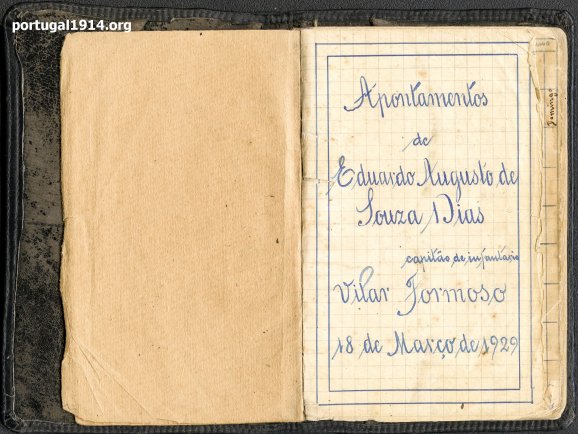 portugal1914.org
Apontamentos
de
Eduardo Augusto de
Souza Dias
capitão de infantaria
Vilar Formoso
18 de Março de 1929
Domingo